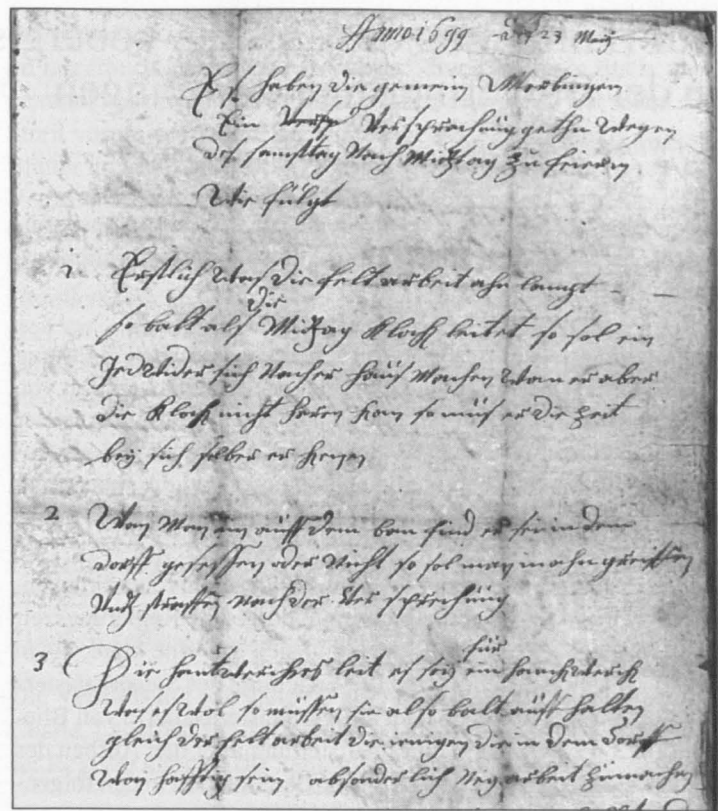 Anno 1699 den 23 Maij
Es haben die gemein Merdingen
Ein Versp Versprechung gethan Wegen
des samstag Nach Mittag zu feiern
Wie fülgt
1 Erstlich Was die felt arbeit ahn langt
so balt als die Mitag Klock leitet so sol ein
Jedwider sich Nacher haus Machen Wan er aber
die Klock nicht heren kan so mus er die zeit
bey sich selber er kenen
2 Wan Man ein auff dem ban find er sei in dem
dorff gesessen oder Nicht so sol man in ahn greiffen
Und straffen Nach der Ver sprechung
3 Die hantwerckhs leit es sey für ein handtwerck
Was es Wol so müssen sie also balt auff halten
gleich der felt arbeit die ienigen die in dem dorff
Won hafftig sein absonderlich arbeit machen